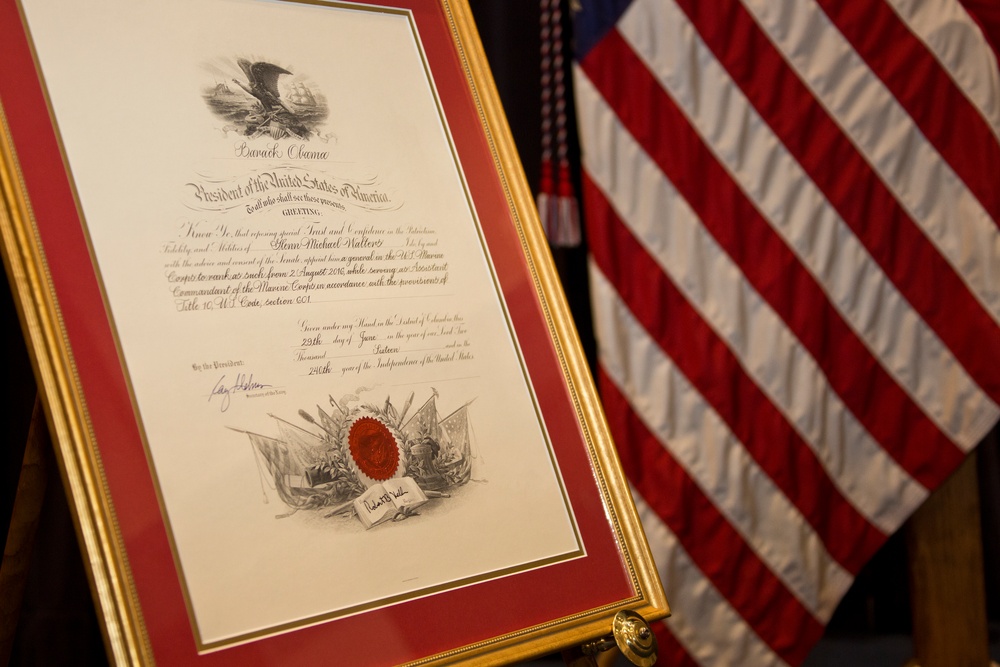 Barack Obama
President of the United States of America.
To all who shall see these presents,
GREETING.
Know Ye, that reposing special Trust and Confidence in the Patriotism,
Fidelity, and Abilities of Glenn Michael Walters I do by and
with the advice and consent of the Senate, appoint him a general in the U.S. Marine
Corps to rank as such from 2 August 2016, while serving as Assistant
Commandant of the Marine Corps in accordance with the provisions of
Title 10, U.S. Code, section 601.
Given under my Hand, in the District of Columbia this
29th day of June in the year of our Lord Two
Thousand Sixteen and in the
240th year of the Independence of the United States
By the President:
Secretary of the Navy